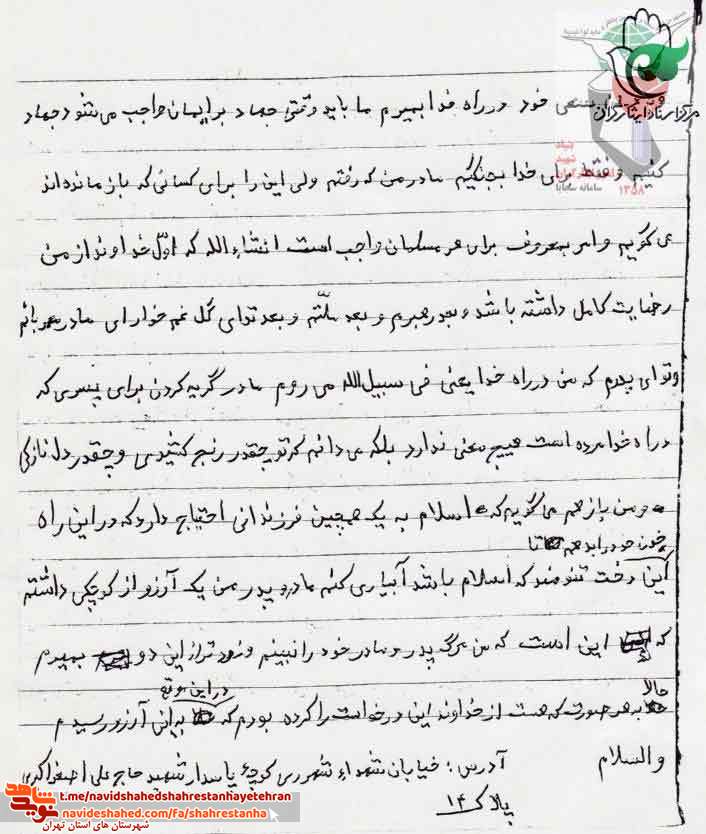 مرکز اسناد ایثارگران
بنیاد شهید
سامانه سجایا
۱۳۵۸
خود در راه خدا بمیرم ما باید وقتی جهاد بر ایمان واجب می شود جهاد
کنیم و فقط برای خدا بجنگیم مادر من که رفتم ولی این را برای کسانی که باز مانده اند
می گویم و امر بمعروف برای هر مسلمان واجب است انشاء الله که اوّل خداوند از من
رضایت کامل داشته باشد و بعد رهبرم و بعد ملّتم و بعد توای گل غم خوار ای مادر مهربانم
وتو ای پدرم که من در راه خدا یعنی فی سبیل الله می روم مادر گریه کردن برای پسری که
در راه خدا مرده است هیچ معنی ندارد بلکه می دانم که تو چقدر رنج کشیدی و چقدر دل نازکی
و من باز هم می گویم که اسلام به یک همچین فرزندانی احتیاج دارد که در این راه
خون خود را بدهم تا
این درخت تنومند که اسلام باشد آبیاری کنم مادر و پدر من یک آرزو از کوچکی داشتم
که این است که من مرگ پدر و مادر خود را نبینم و زود تر از این دو بمیرم
حالا
در این موقع
به هر صورت که هست از خداوند این درخواست را کرده بودم که به این آرزو رسیدم
والسلام
آدرس: خیابان شهداء شهرری کوچهٔ پاسدار شهید حاج علی اصغر اکبری
پلاک ۱۴
شاهد
t.me/navidshahedshahrestanhayetehran
navideshahed.com/fa/shahrestanha
شهرستان های استان تهران